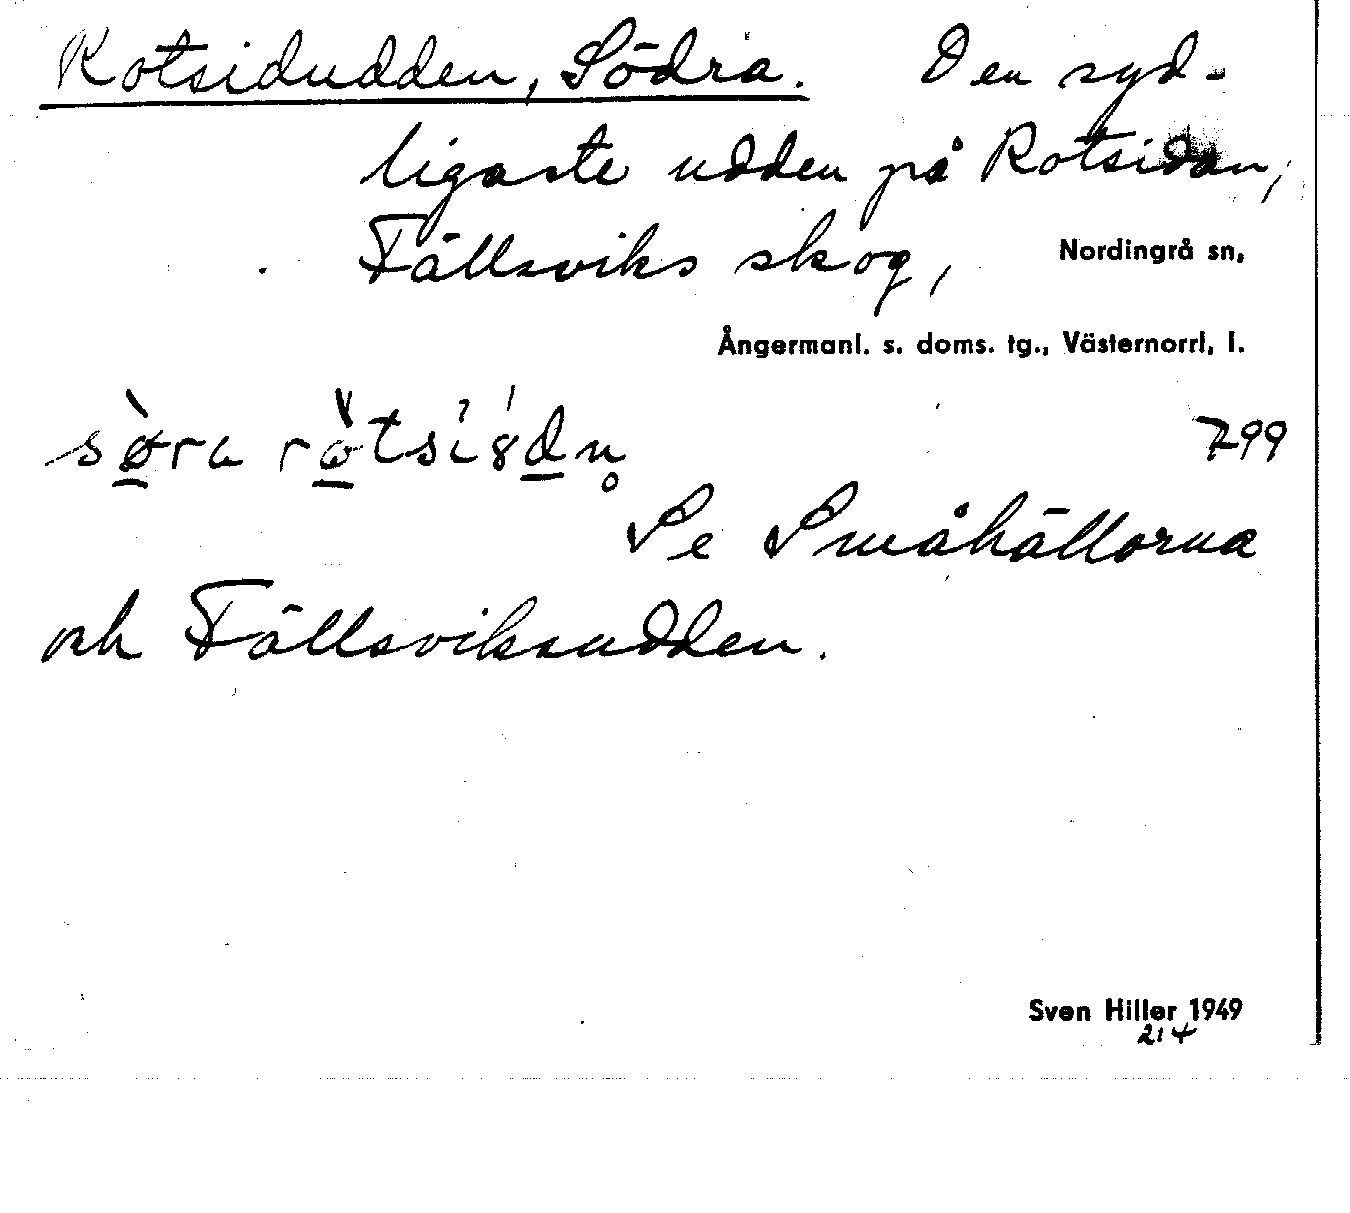 Rotsidudden, Södra. Den syd-
ligaste udden på Rotsidan,
Fällsviks skog, Nordingrå sn,
Ångermanl. s. doms. tg., Västernorrl. l.
799
Se Småhällorna
och Fällsviksudden.
Sven Hiller 1949
214